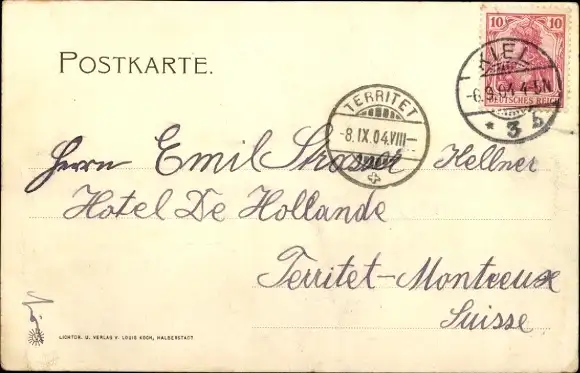 POSTKARTE.
10 10
DEUTSCHES REICH
KIEL
-6.9.04.4-5N.
* 3 b
TERRITET
-8.IX.04.VIII-
Herrn Emil Strasser Kellner
Hotel De Hollande
Territet-Montreux
Suisse
LICHTDR. U. VERLAG V. LOUIS KOCH, HALBERSTADT